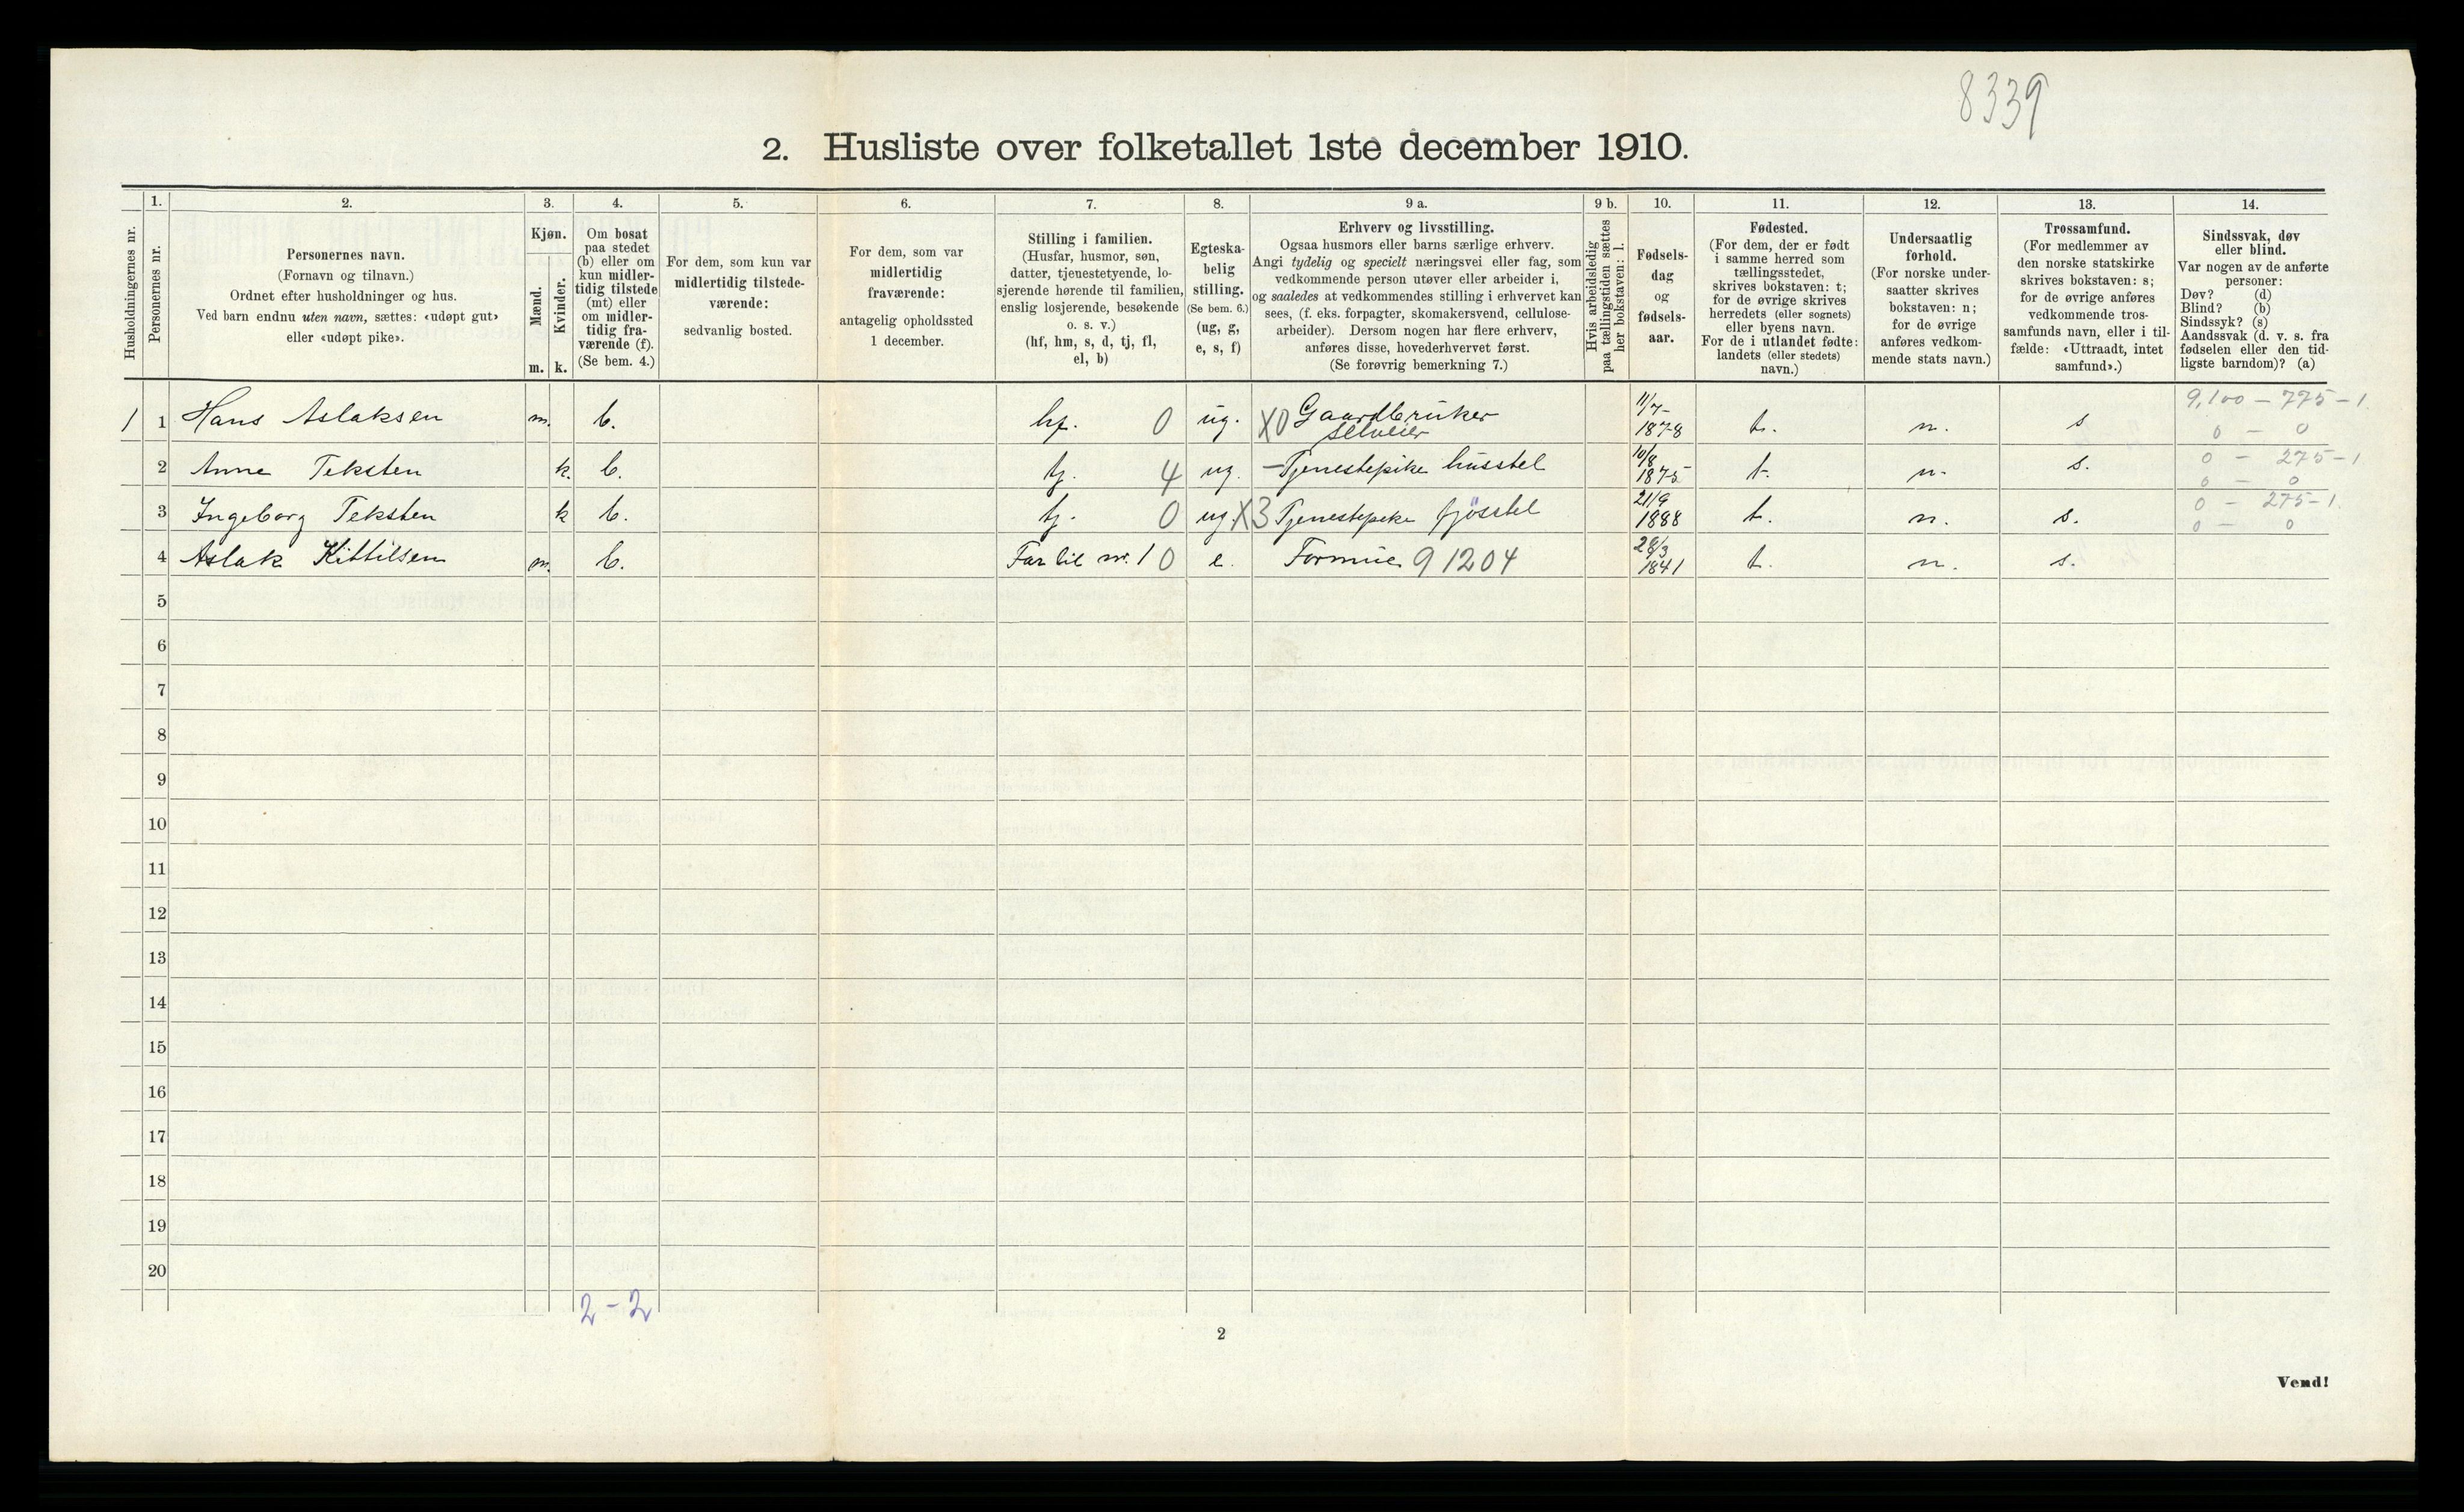 8339
2. Husliste over folketallet 1ste december 1910.
1. 2. 3. 4. 5. 6. 7. 8. 9 a. 9 b. 10. 11. 12. 13. 14.
Husholdningernes nr.
Personernes nr.
Personernes navn.
(Fornavn og tilnavn.)
Ordnet efter husholdninger og hus.
Ved barn endnu uten navn, sættes: «udøpt gut»
eller «udøpt pike».
Kjøn.
Mænd.
Kvinder.
m. k.
Om bosat
paa stedet
(b) eller om
kun midler-
tidig tilstede
(mt) eller
om midler-
tidig fra-
værende (f).
(Se bem. 4.)
For dem, som kun var
midlertidig tilstede-
værende:
sedvanlig bosted.
For dem, som var
midlertidig
fraværende:
antagelig opholdssted
1 december.
Stilling i familien.
(Husfar, husmor, søn,
datter, tjenestetyende, lo-
sjerende hørende til familien,
enslig losjerende, besøkende
o. s. v.)
(hf, hm, s, d, tj, fl,
el, b)
Egteska-
belig
stilling.
(Se bem. 6.)
(ug, g,
e, s, f)
Erhverv og livsstilling.
Ogsaa husmors eller barns særlige erhverv.
Angi tydelig og specielt næringsvei eller fag, som
vedkommende person utøver eller arbeider i,
og saaledes at vedkommendes stilling i erhvervet kan
sees, (f. eks. forpagter, skomakersvend, cellulose-
arbeider). Dersom nogen har flere erhverv,
anføres disse, hovederhvervet først.
(Se forøvrig bemerkning 7.)
Hvis arbeidsledig
paa tællingstiden sættes
her bokstaven: l.
Fødsels-
dag
og
fødsels-
aar.
Fødested.
(For dem, der er født
i samme herred som
tællingsstedet,
skrives bokstaven: t;
for de øvrige skrives
herredets (eller sognets)
eller byens navn.
For de i utlandet fødte:
landets (eller stedets)
navn.)
Undersaatlig
forhold.
(For norske under-
saatter skrives
bokstaven: n;
for de øvrige
anføres vedkom-
mende stats navn.)
Trossamfund.
(For medlemmer av
den norske statskirke
skrives bokstaven: s;
for de øvrige anføres
vedkommende tros-
samfunds navn, eller i til-
fælde: «Uttraadt, intet
samfund».)
Sindssvak, døv
eller blind.
Var nogen av de anførte
personer:
Døv? (d)
Blind? (b)
Sindssyk? (s)
Aandssvak (d. v. s. fra
fødselen eller den tid-
ligste barndom)? (a)
1 1 Hans Aslaksen m. b. hf. 0 ug. X0 Gaardbruker selveier 11/7- 1878 t. n. s 9,100 - 775 - 1.
0 - 0
2 Anne Teksten k. b. tj. 4 ug. - Tjenestepike husstel 10/8 1875 t. n. s. 0 - 275 - 1
0 - 0
3 Ingeborg Teksten k b. tj. 0 ug. X3 Tjenestepike fjøsstel 21/9 1888 t. n. s. 0 - 275 - 1.
0 - 0
4 Aslak Kittilsen m. b. Far til nr. 1 0 e. Formue 9 1204 28/3 1841 t. n. s.
5
6
7
8
9
10
11
12
13
14
15
16
17
18
19
20
2 - 2
2
Vend!